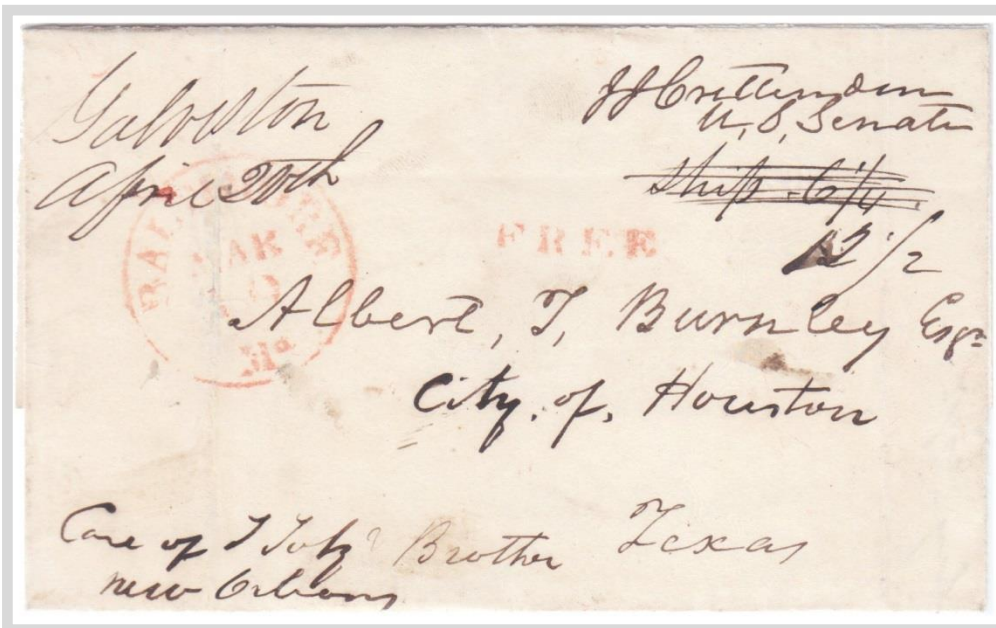 Galveston
April 20th
JJ Crittenden
U, S, Senate
Ship. 6 1/4.
12 1/2
BALTIMORE
MAR
Md
FREE
Albert, T, Burnley Esqr
City, of, Houston
Texas
Care of Brother
new Orleans